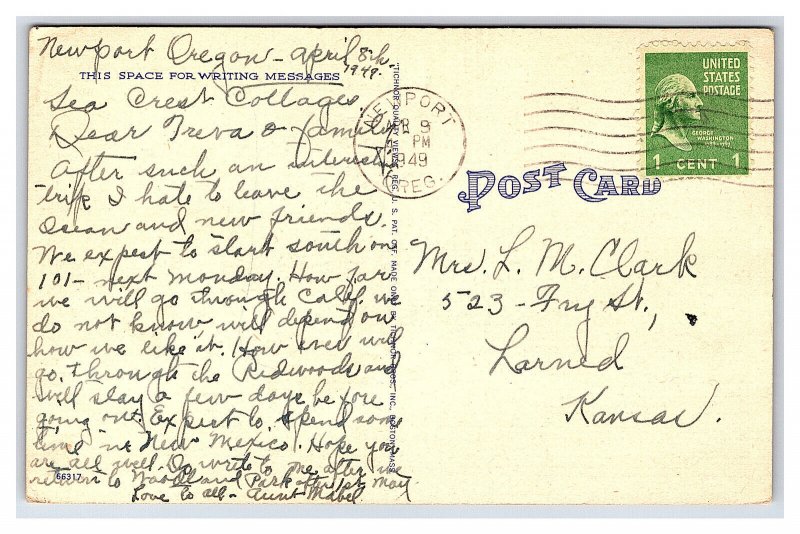 Newport Oregon - April 8th,
1949.
THIS SPACE FOR WRITING MESSAGES
Sea Crest Cottages
Dear Treva & family
After such an interest
trip I hate to leave the
Ocean and new friends.
We expect to start south on
101 - next Monday. How far
we will go through Calif. we
do not know, will depend on
how we like it. How ever will
go through the Redwoods and
will stay a few days before
going on. Expect to spend some
time in New Mexico. Hope you
are all well. Do write to me after we
return to Woodland Park after 1st May
Love to all - Aunt Mabel
66317
"TICHNOR QUALITY VIEWS," REG. U. S. PAT. OFF. MADE ONLY BY TICHNOR BROS., INC., BOSTON, MASS.
NEWPORT
APR 9
PM
1949
OREG.
UNITED
STATES
POSTAGE
GEORGE
WASHINGTON
1 CENT 1
POST CARD
Mrs. L. M. Clark
523 - Fry St.,
Larned
Kansas.